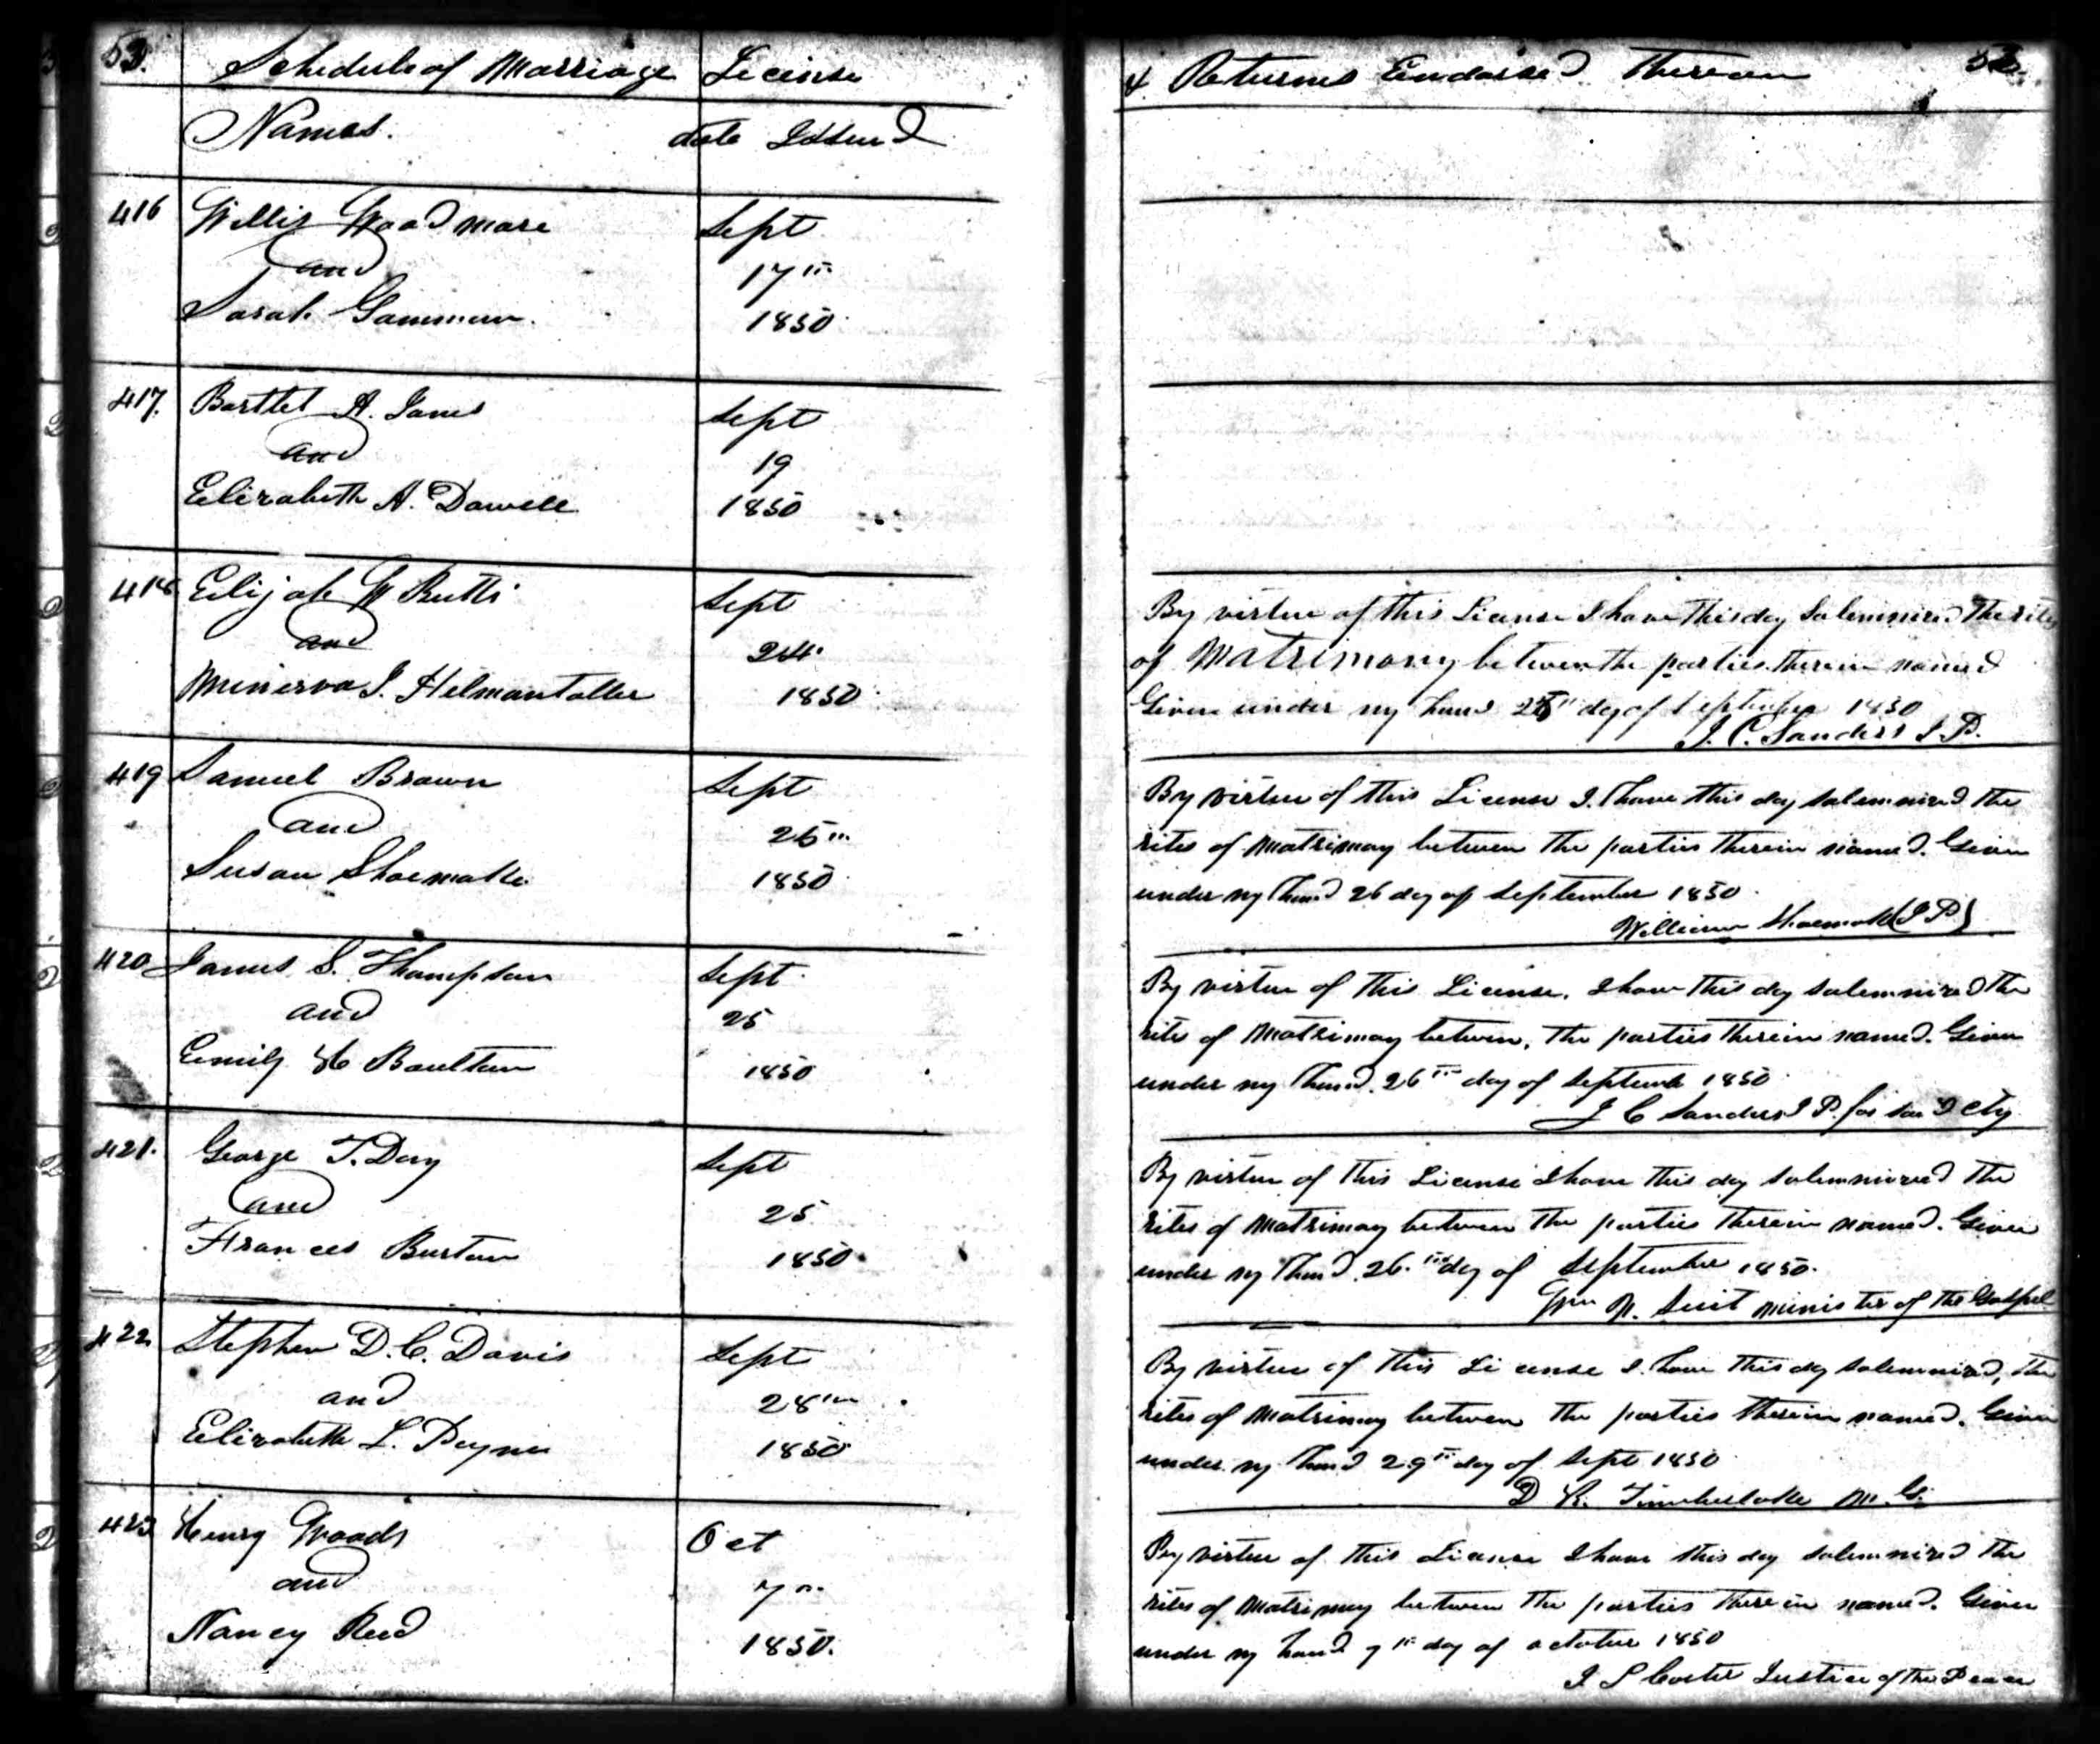 53. Schedule of Marriage License
Names. date Issued
416 Willis Woodmore
and
Sarah Gammon.
Sept
17th
1850
417. Bartlet A. Janes
and
Elizabeth A. Dowell
Sept
19
1850
418 Elijah W Butts
and
Minerva J. Helmantoller
Sept
24
1850
419 Samuel Brown
and
Susan Shoemake
Sept
25th
1850
420 James S. Thompson
and
Emily H Boulton
Sept
25
1850
421. George T. Day
and
Frances Burton
Sept
25
1850
422 Stephen D. C. Davis
and
Elizabeth L. Payne
Sept
28th
1850
423 Henry Woods
and
Nancy Reed
Oct
7th
1850.
& Returns Endorsed Thereon 53.
By virtue of this License I have this day Solemnized the rites
of Matrimony between the parties therein named
Given under my hand day of September 1850
J. C. Sanders J. P.
By virtue of this License I have this day solemnized the
rites of Matrimony between the parties therein named. Given
under my hand 26 day of September 1850
William Shoemake (J P)
By virtue of this License, I have this day solemnized the
rites of Matrimony between, the parties therein named. Given
under my hand. 26th day of September 1850
J C Sanders J P. for said Cty
By virtue of this License I have this day solemnized the
rites of Matrimony between the parties therein named. Given
under my hand. 26.th day of September 1850.
Wm N. Suit Minister of the Gospel
By virtue of this License I have this day solemnized, the
rites of Matrimony between the parties therein named. Given
under my hand 29th day of Sept 1850
D R. Timberlake M. G.
By virtue of this License I have this day solemnized the
rites of Matrimony between the parties therein named. Given
under my hand 7th day of october 1850
J S Carter Justice of the Peace